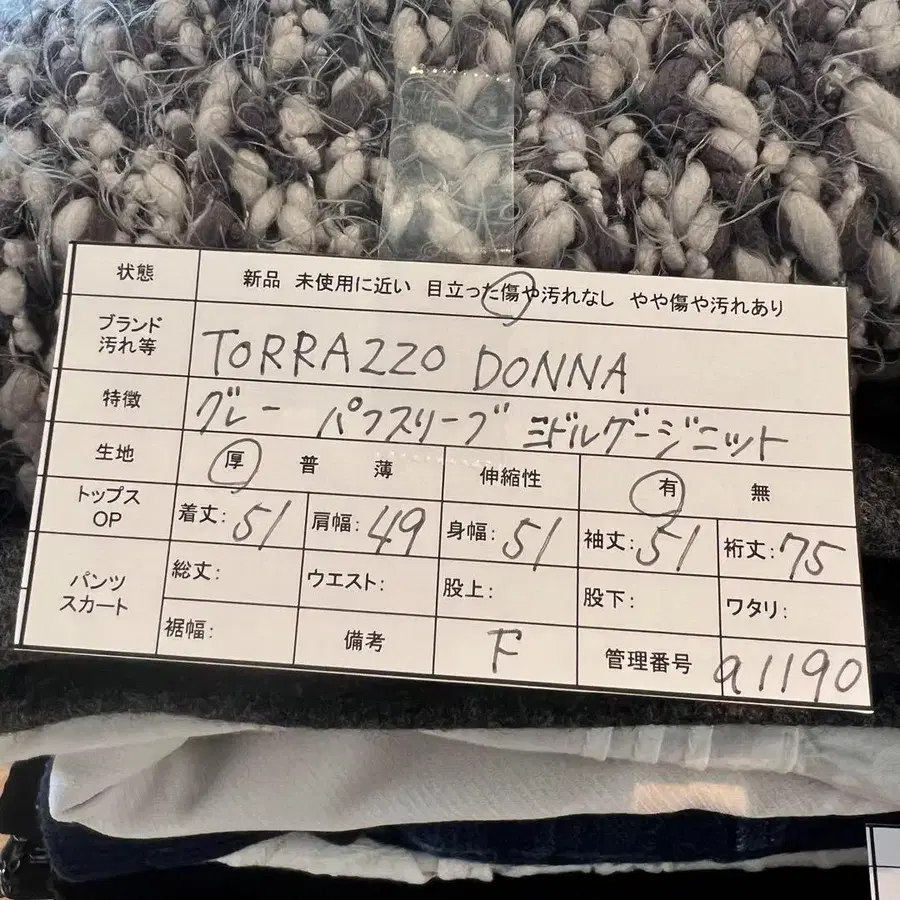 状態 新品 未使用に近い 目立った傷や汚れなし やや傷や汚れあり
ブランド
汚れ等 TORRAZZO DONNA
特徴 グレー パフスリーブ ミドルゲージニット
生地 厚 普 薄 伸縮性 有 無
トップス
OP 着丈:51 肩幅:49 身幅:51 袖丈:51 裄丈:75
パンツ
スカート 総丈: ウエスト: 股上: 股下: ワタリ:
裾幅: 備考 F 管理番号 a1190